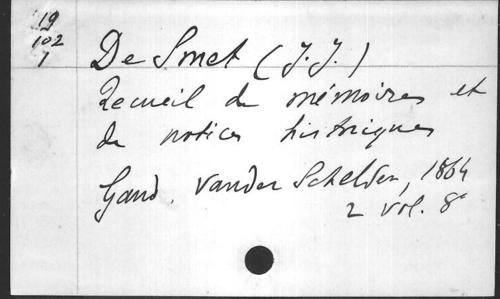 19
102
1
De Smet (J. J.)
Recueil de mémoires et
de notices historiques
Gand. Vander Schelden, 1864
2 vol. 8°